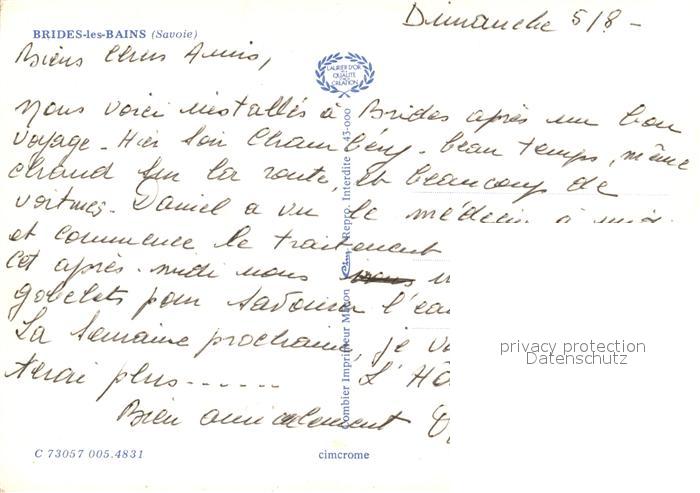 Dimanche 5/8 -
BRIDES-les-BAINS (Savoie)
Biens Chers Amis,
LAURIER D'OR
DE LA
QUALITÉ
CRÉATION
Nous voici installés à Brides après un bon
voyage - Hier soir Chambéry - beau temps, même
chaud sur la route, et beaucoup de
voitures. Daniel a vu le médecin à midi
et commence le traitement
cet après-midi nous
gobelets pour savourer l'eau
La semaine prochaine, je
plus ------ L'
Bien amicalement
Combier Imprimeur Mâcon Cim Repro. Interdite 43-000
privacy protection
Datenschutz
C 73057 005.4831
cimcrome